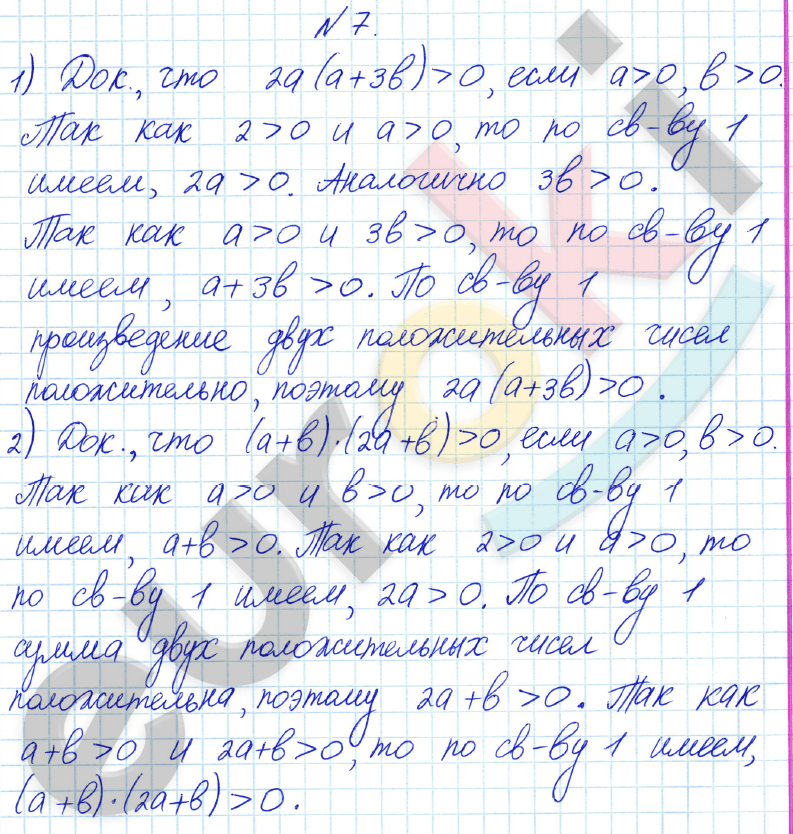 N 7.
1) Док., что 2а(а+3в)>0, если а>0, в>0.
Так как 2>0 и а>0, то по св-ву 1
имеем, 2а>0. Аналогично 3в>0.
Так как а>0 и 3в>0, то по св-ву 1
имеем, а+3в>0. По св-ву 1
произведение двух положительных чисел
положительно, поэтому 2а(а+3в)>0.
2) Док., что (а+в)·(2а+в)>0, если а>0, в>0.
Так как а>0 и в>0, то по св-ву 1
имеем, а+в>0. Так как 2>0 и а>0, то
по св-ву 1 имеем, 2а>0. По св-ву 1
сумма двух положительных чисел
положительна, поэтому 2а+в>0. Так как
а+в>0 и 2а+в>0, то по св-ву 1 имеем,
(а+в)·(2а+в)>0.
euroki